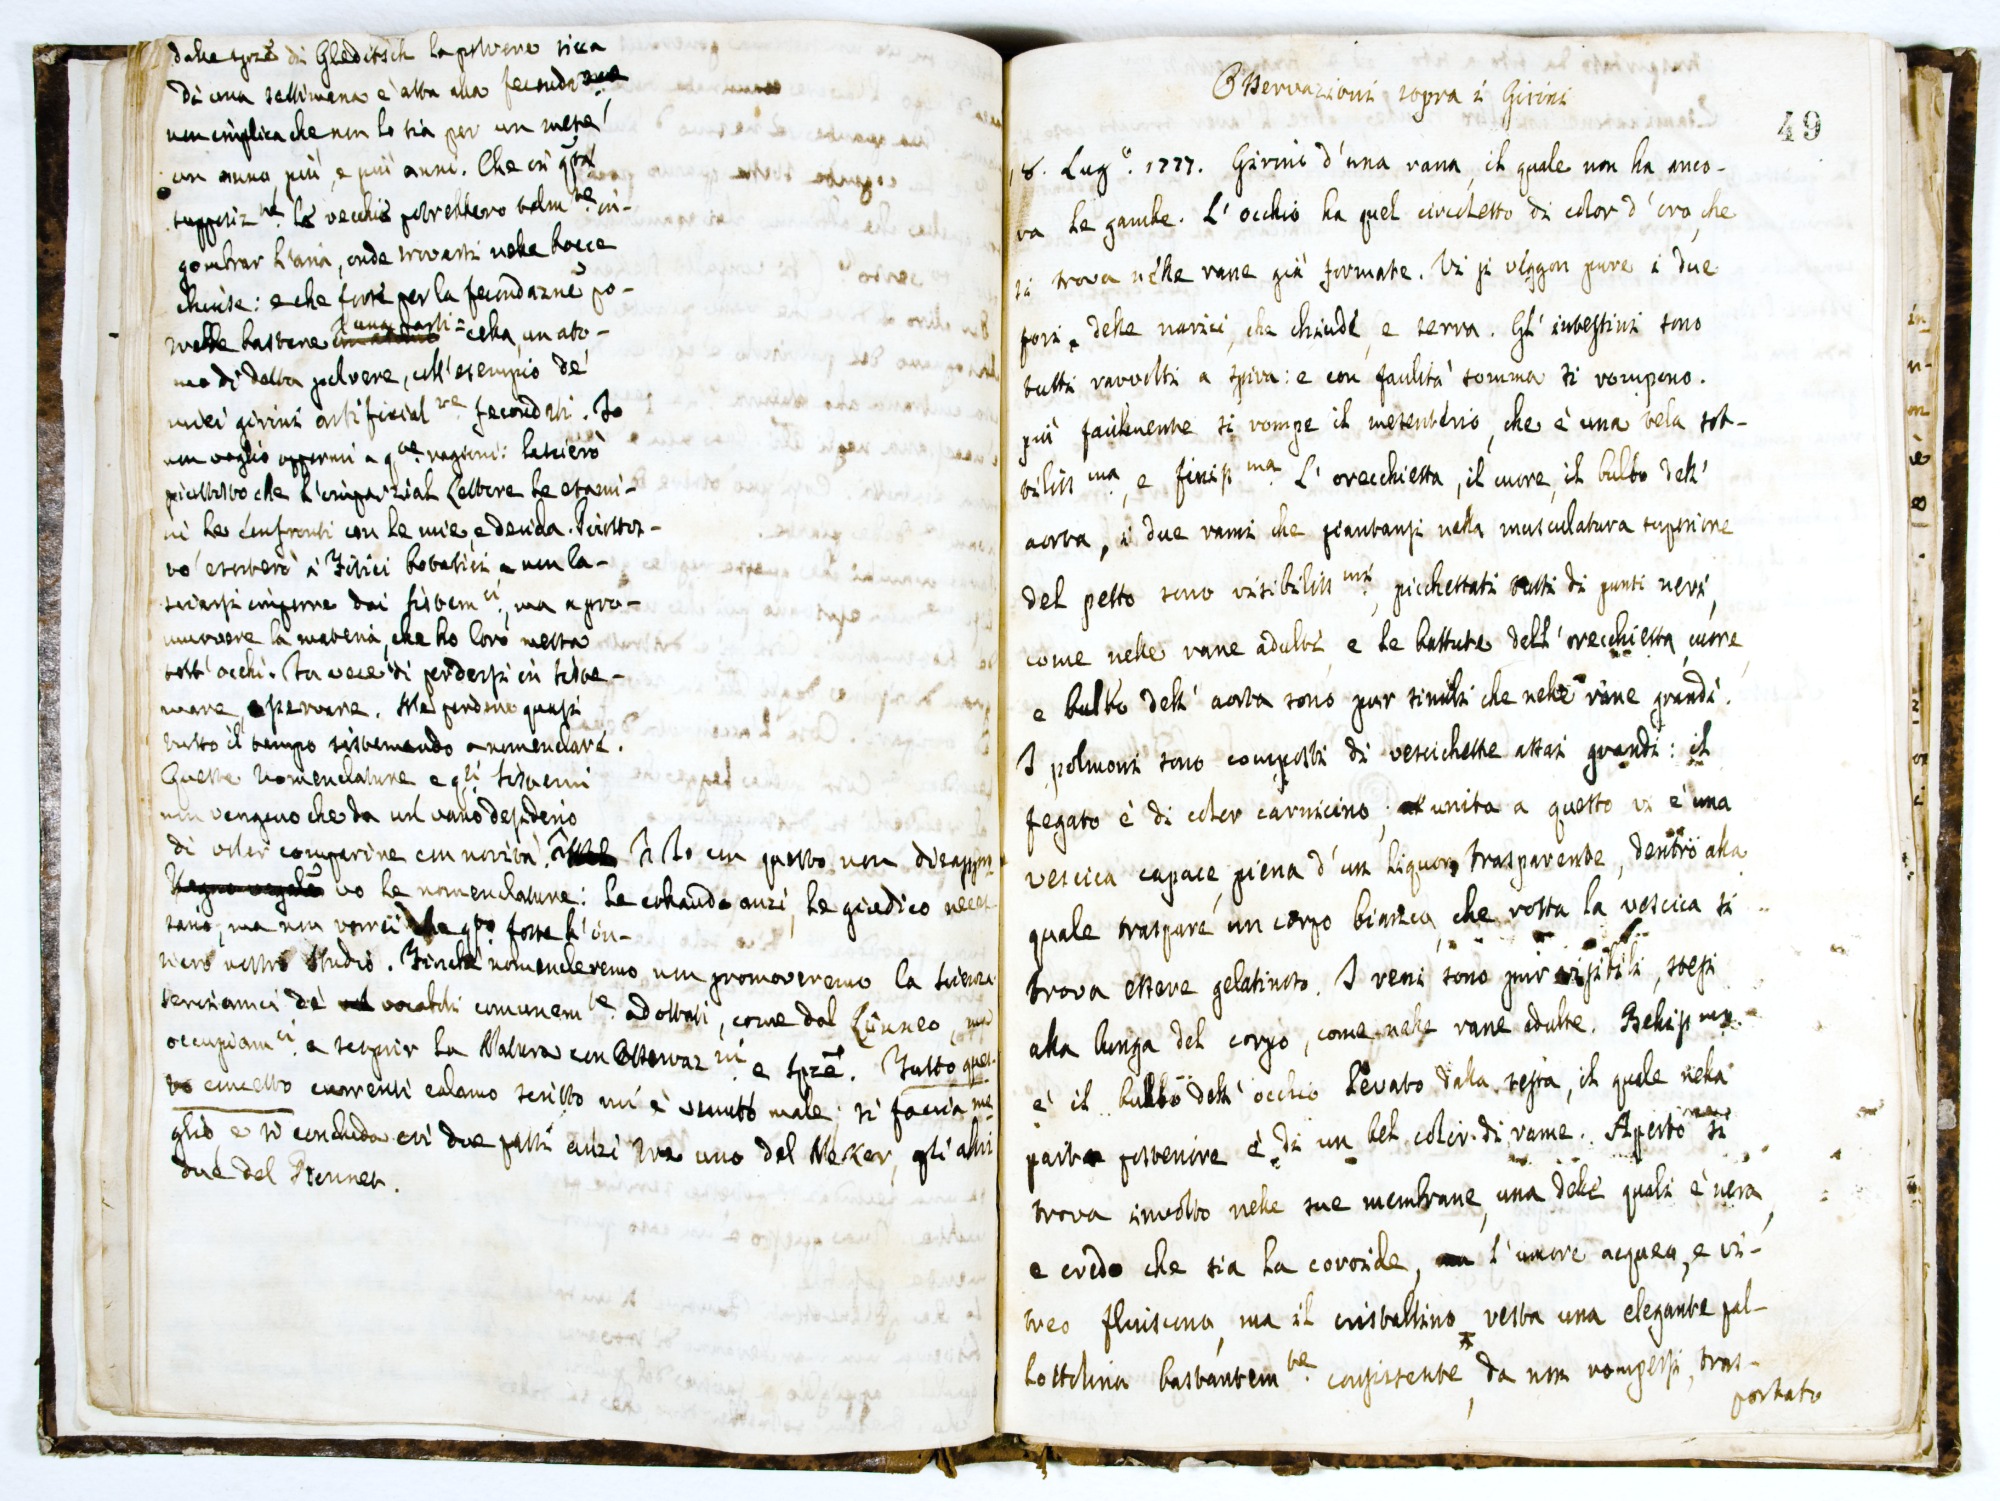 dalle sprze di Gleditsch la polvere sicca
di una settimana è atta alla fecondazne
non implica che non lo sia per un mese,
un anno, più, e più anni. Che in qsta
supposizne le vecchie potrebbero talmte in-
gombrar l'aria, onde trovarsi nelle bocce
chiuse: e che forse per la fecondazne po-
trebbe bastare una parti-cella, un ato-
mo di detta polvere, coll'esempio de'
miei girini artificialme fecondati. Io
non voglio oppormi a qste ragioni: lascierò
piuttosto che l'imparzial Lettore le esami-
ni le confronti con le mie, e decida.
vo' esorterò i Fisici Botanici a non la-
sciarsi imporre dai sistemci, ma a pro-
muovere la materia, che ho loro messa
sott'occhi. In vece di perdersi in siste-
mare, operare. Me perdono quasi
tutto il tempo sistemando a nomenclare.
Queste nomenclature e qsti sistemi
non vengono che da un vano desiderio
di voler comparire con novità. Io con questo non disappro-
vo le nomenclature: le comando anzi, le giudico neces-
sarie, ma non vorrei che qsto fosse l'in-
tiero nostro studio. Finchè nomencleremo non promoveremo la scienza
serviamci de' vocaboli comunemte adottati, come dal Linneo, ma
occupiamci a scoprir la Natura con Osservazni e sprze. Tutto ques-
to concetto currenti calamo scritto mi è venuto male: si faccia me
glio e si concluda coi due passi anzi tre uno del Neker, gli altri
due del Bonnet.
Osservazioni sopra i Girini
49
18. Lugo. 1777. Girini d'una rana, il quale non ha anco-
ra le gambe. L'occhio ha quel circoletto di color d'oro, che
si trova nelle rane già formate. Vi si veggon pure i due
fori delle narici, che chiude, e serra. Gl'intestini sono
tutti ravvolti a spira: e con facilità somma si rompono.
più facilmente si rompe il mesenterio, che è una tela sot-
tilissma, e finissma. L'orecchietta, il cuore, il bulbo dell'
aorta, i due rami che piantansi nella musculatura superiore
del petto sono visibilissmi, picchettati tutti di punti neri,
come nelle rane adulte, e le battute dell'orecchietta, cuore,
e bulbo dell'aorta sono pur simili che nelle rane grandi.
I polmoni sono composti di vescichette assai grandi: il
fegato è di color carnicino; unita a questo vi è una
vescica capace, piena d'un liquor trasparente, dentro alla
quale traspare un corpo bianco, che rotta la vescica si
trova essere gelatinoso. I reni sono pur visibili, stesi
alla lunga del corpo, come nelle rane adulte. Bellissmo
è il bulbo dell'occhio levato dalla testa, il quale nella
parte posteriore è di un bel color di rame. Aperto si
trova involto nelle sue membrane, una delle quali è nera,
e credo che sia la coroide, l'umore acqueo, e vi-
treo fluiscono, ma il cristallino resta una elegante pal-
lottolina bastantemte consistente, da non rompersi, tras-
portato